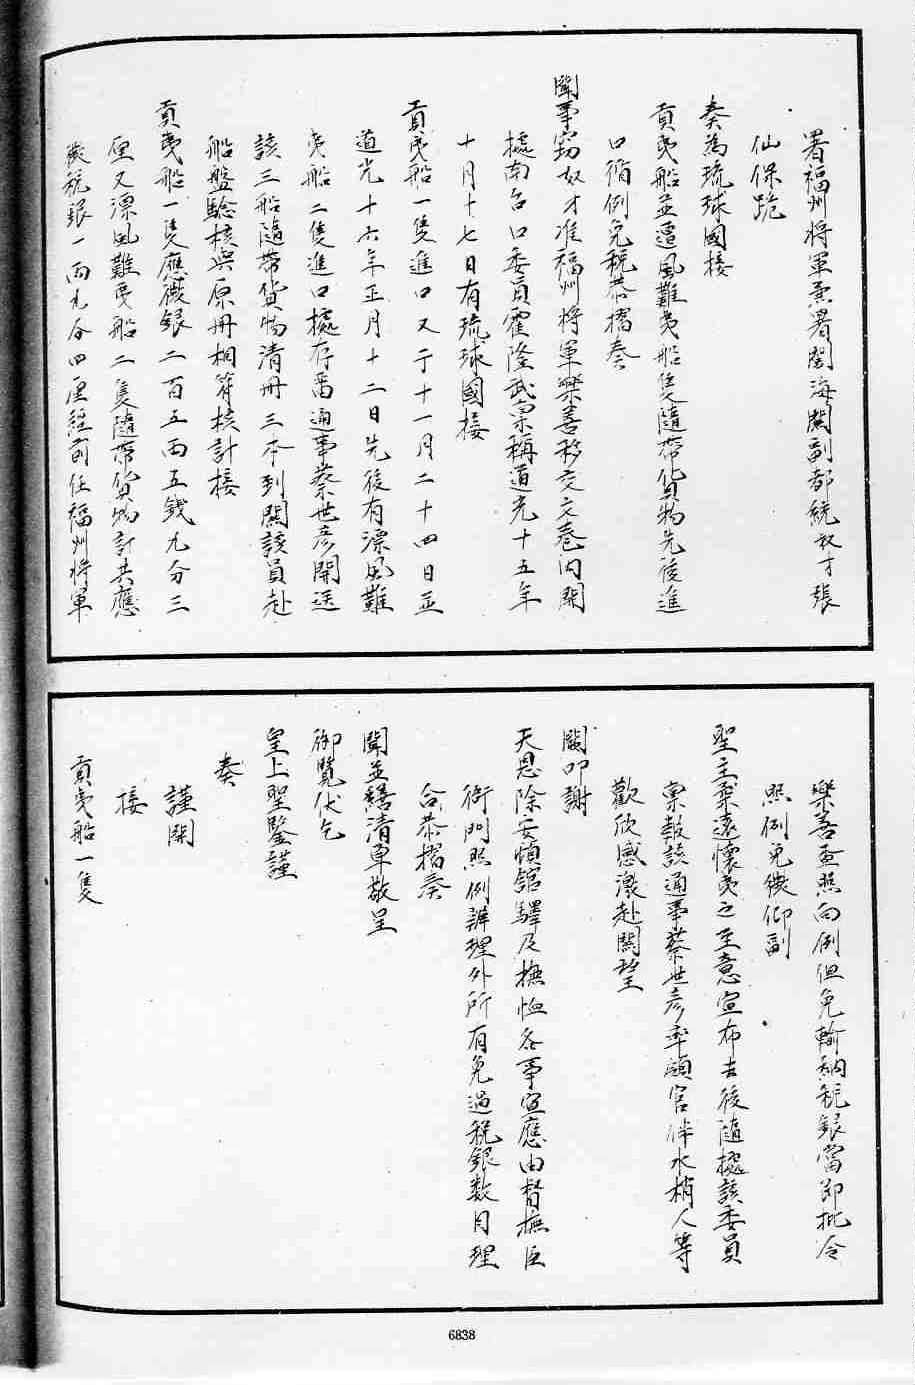 署福州將軍兼署閩海關副都統奴才張
仙保跪
奏為琉球國接
貢夷船並遭風難夷船隻隨帶貨物先後進
口循例免稅恭摺奏
聞事竊奴才准福州將軍樂善移交文卷內開
據南台口委員霍隆武稟稱道光十五年
十月十七日有琉球國接
貢夷船一隻進口又于十一月二十四日並
道光十六年正月十二日先後有漂風難
夷船二隻進口據存留通事蔡世彥開送
該三船隨帶貨物清冊三本到關該員赴
船盤驗核與原冊相符核計接
貢夷船一隻應徵銀二百五兩五錢九分三
厘又漂風難夷船二隻隨帶貨物計共應
徵稅銀一兩九分四厘經前任福州將軍
樂善查照向例俱免輸納稅銀當即批令
照例免徵仰副
聖主柔遠懷夷之至意宣布去後隨據該委員
稟報該通事蔡世彥率領官伴水梢人等
歡欣感激赴關望
闕叩謝
天恩除安頓館驛及撫恤各事宜應由督撫臣
衙門照例辦理外所有免過稅銀數目理
合恭摺奏
聞並繕清單敬呈
御覽伏乞
皇上聖鑒謹
奏
謹開
接
貢夷船一隻
6838